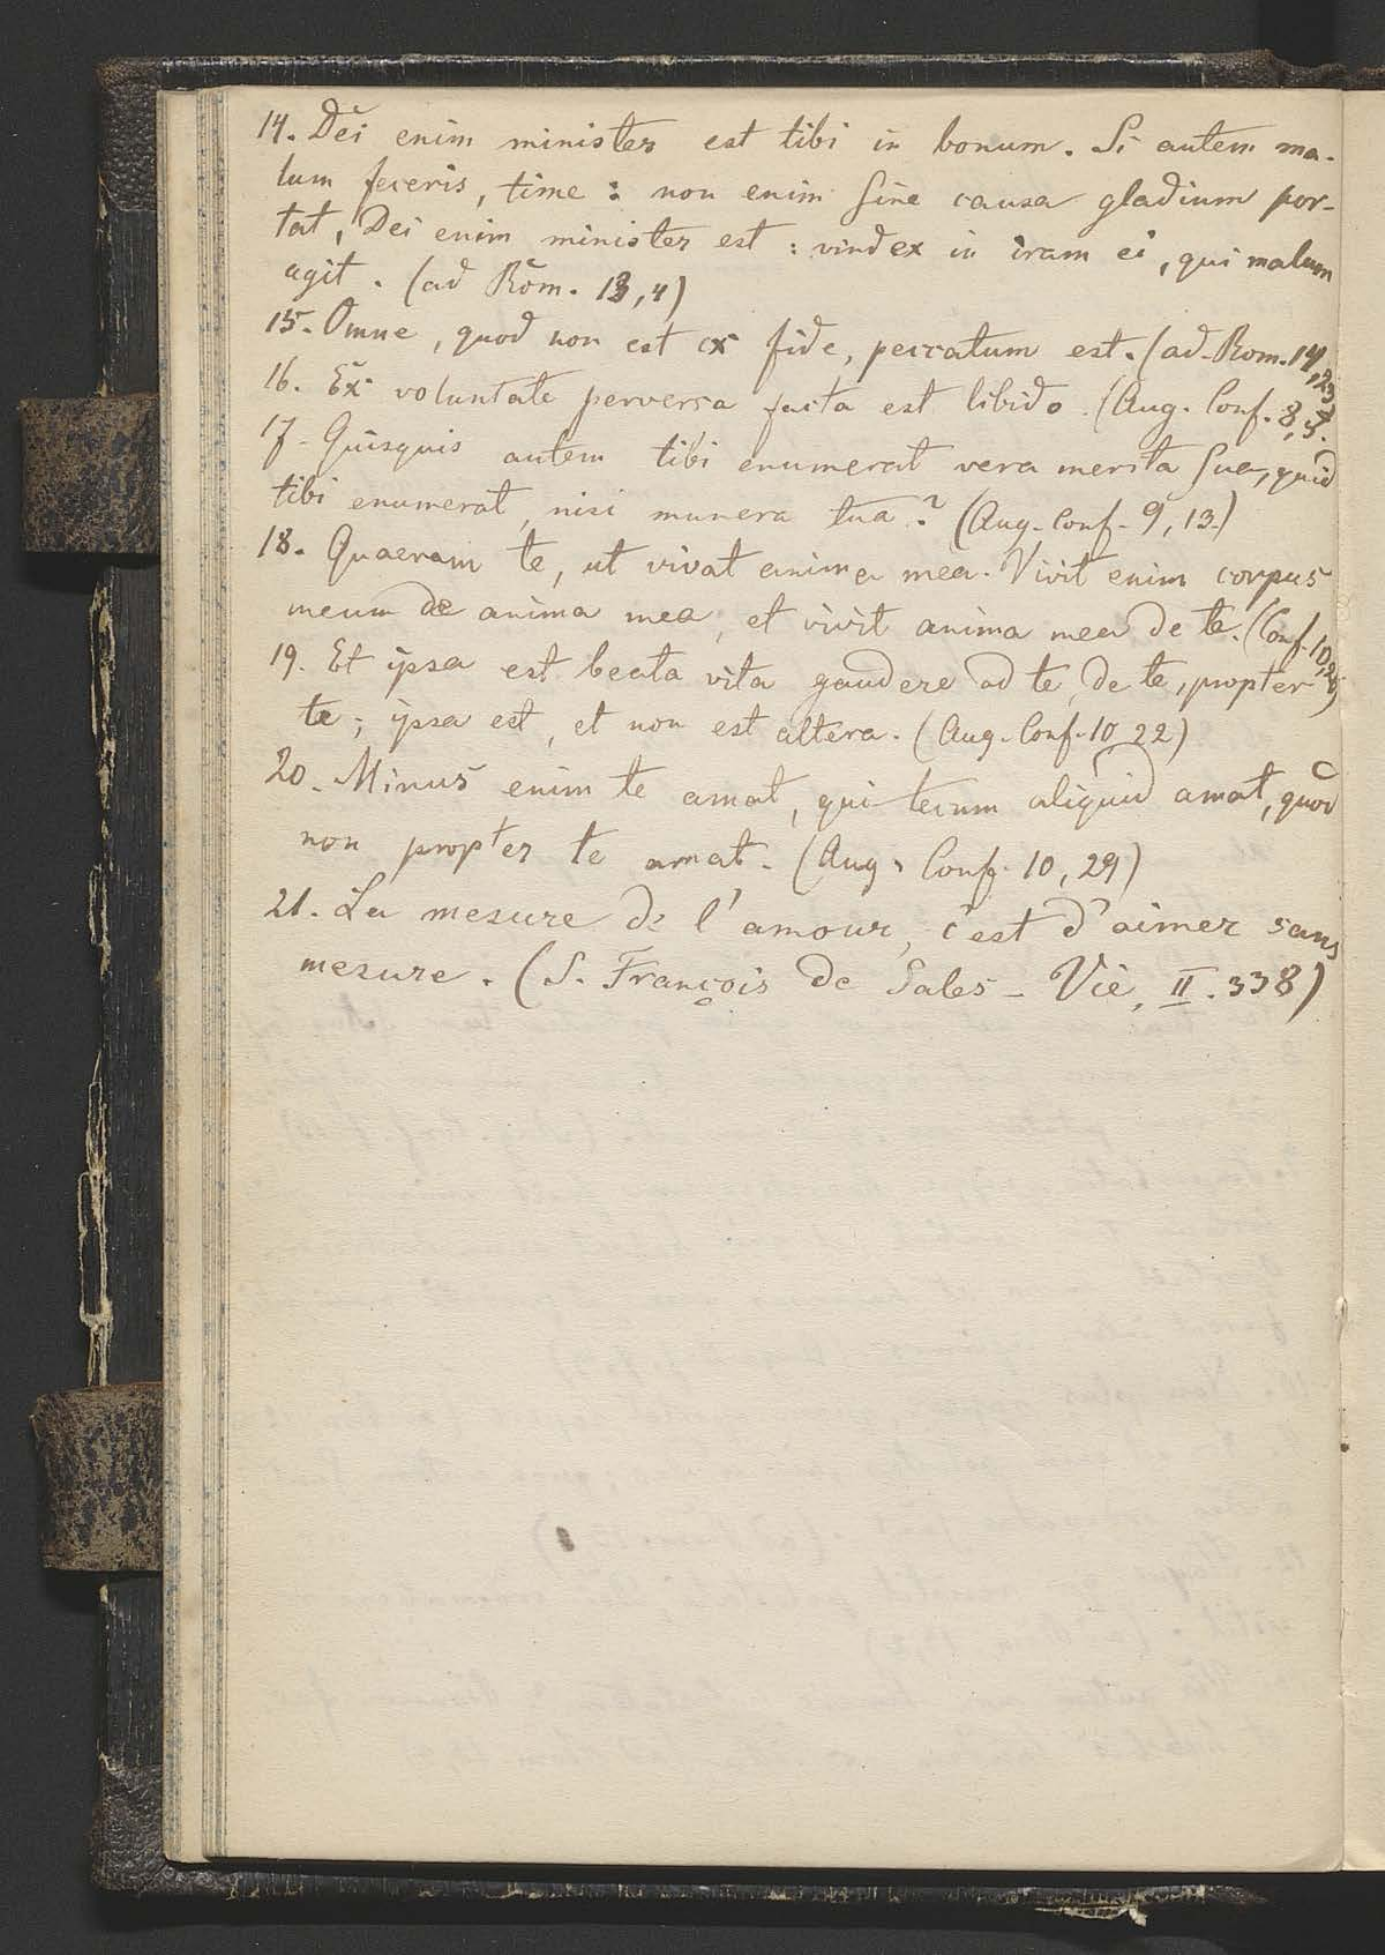 14. Dei enim minister est tibi in bonum. Si autem ma-
lum feceris, time: non enim sine causa gladium por-
tat, Dei enim minister est: vindex in iram ei, qui malum
agit. (ad Rom. 13,4)
15. Omne, quod non est ex fide, peccatum est. (ad Rom. 14,23)
16. Ex voluntate perversa facta est libido. (Aug. Conf. 8,5.)
17. Quisquis autem tibi enumerat vera merita sua, quid
tibi enumerat, nisi munera tua? (Aug. Conf. 9, 13.)
18. Quaeram te, ut vivat anima mea. Vivit enim corpus
meum de anima mea, et vivit anima mea de te. (Conf. 10,20)
19. Et ipsa est beata vita gaudere ad te, de te, propter
te; ipsa est, et non est altera. (Aug. Conf. 10 22)
20. Minus enim te amat, qui tecum aliquid amat, quod
non propter te amat. (Aug. Conf. 10, 29)
21. La mesure de l'amour, c'est d'aimer sans
mesure. (S. François de Sales - Vie, II. 338)